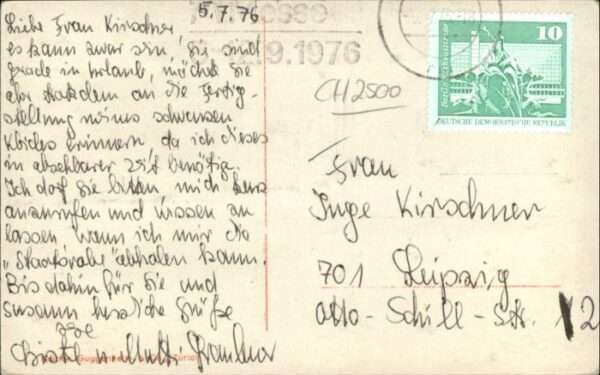 5.7.76
Liebe Frau Kirschner,
es kann zwar sein, Sie sind
gerade in Urlaub, möchte Sie
aber trotzdem an die Fertig-
stellung meines schwarzen
Kleides erinnern, da ich dieses
in absehbarer Zeit benötige.
Ich darf Sie bitten, mich kurz
anzurufen und wissen zu
lassen wann ich mir die
"Staatsrobe" abholen kann.
Bis dahin für Sie und
Susann herzliche Grüße
Ihre
u. Mutti
messe
9.1976
CH 2500
10
DEUTSCHE DEMOKRATISCHE REPUBLIK
Frau
Inge Kirschner
701 Leipzig
Otto-Schill-Str. 2